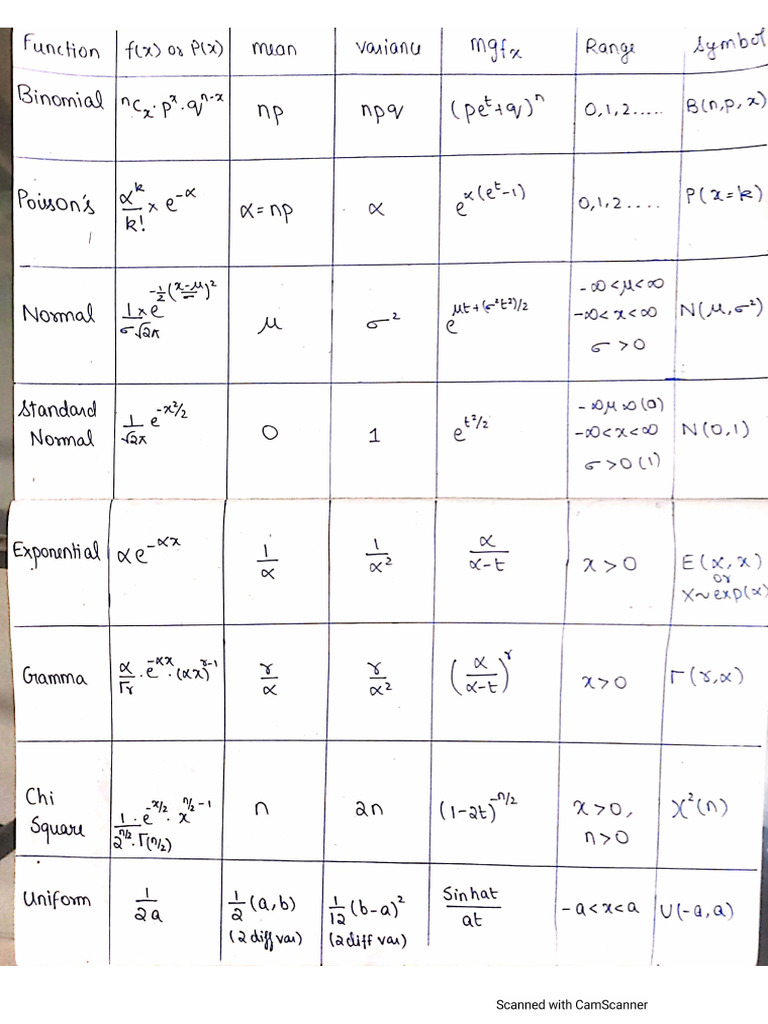 Function f(x) or P(x) mean variance mgfx Range Symbol
Binomial ⁿCₓ · pˣ · qⁿ⁻ˣ np npq (peᵗ+q)ⁿ 0,1,2..... B(n,p,x)
Poisson's α^k/k! × e^-α α=np α e^α(e^t-1) 0,1,2.... P(x=k)
Normal 1/σ√2π × e^-½((x-μ)/σ)² μ σ² e^μt+(σ²t²)/2 -∞<μ<∞ -∞<x<∞ σ>0 N(μ,σ²)
Standard Normal 1/√2π e^-x²/2 0 1 e^t²/2 -∞μ∞(0) -∞<x<∞ σ>0(1) N(0,1)
Exponential αe^-αx 1/α 1/α² α/α-t x>0 E(α,x) or X~exp(α)
Gamma α/Γr · e^-αx · (αx)^r-1 r/α r/α² (α/α-t)^r x>0 Γ(r,α)
Chi Square 1/2^n/2·Γ(n/2) · e^-x/2 · x^n/2-1 n 2n (1-2t)^-n/2 x>0, n>0 X²(n)
Uniform 1/2a 1/2(a,b) (2 diff var) 1/12(b-a)² (2 diff var) Sinhat/at -a<x<a U(-a,a)
Scanned with CamScanner